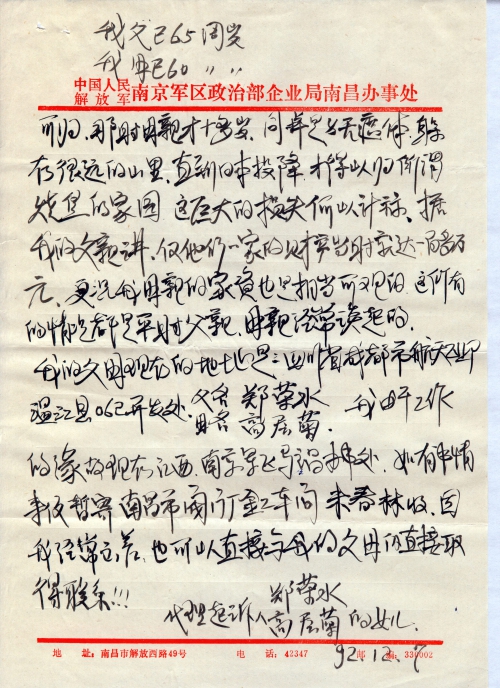 我父已65周岁
我母已60 〃 〃
中国人民解放军南京军区政治部企业局南昌办事处
可归，那时母亲才十多岁，同样是无遮体，躲
在很远的山里，直到日本投降，才得以归所谓
烧焦的家园，这巨大的损失何以计称，据
我的父亲讲，仅他们一家的财产当时就达一百多万
元，更没我母亲的家资也是相当可观的，这所有
的情况都是平时父亲、母亲经常谈起的。
我的父母现在的地址是：四川省成都市航天部
温江县062开发处，父名 郑荣水
母名 高居菊。我由于工作
的缘故现在江西，南京军区导 办事处，如有事情
来信暂寄南昌市阀门厂金工车间 朱春林收，因
我经常出差，也可以直接与我的父母们直接取
得联系!!!
代理起诉人 郑荣水
高居菊 的女儿
92.12.7
地 址：南昌市解放西路49号 电 话：42347 邮 编：330002